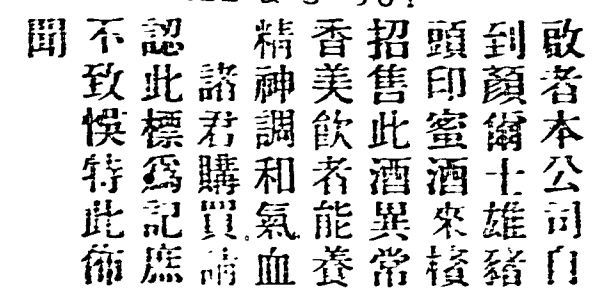 啟者本公司自
到顏爾士雄豬
頭印蜜酒來檳
招售此酒異常
香美飲者能養
精神調和氣血
諸君購買請
認此標爲記庶
不致悞特此佈
聞